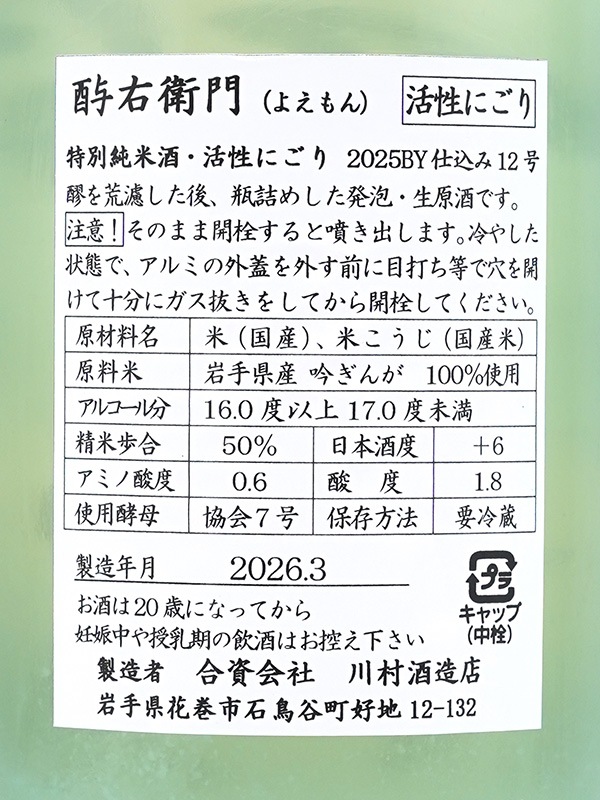 酉与右衛門（よえもん） 活性にごり
特別純米酒・活性にごり 2025BY仕込み12号
醪を荒濾した後、瓶詰めした発泡・生原酒です。
注意！そのまま開栓すると噴き出します。冷やした
状態で、アルミの外蓋を外す前に目打ち等で穴を開
けて十分にガス抜きをしてから開栓してください。
原材料名 米（国産）、米こうじ（国産米）
原料米 岩手県産 吟ぎんが 100%使用
アルコール分 16.0度以上17.0度未満
精米歩合 50% 日本酒度 +6
アミノ酸度 0.6 酸度 1.8
使用酵母 協会7号 保存方法 要冷蔵
製造年月 2026.3
プラ
キャップ
（中栓）
お酒は20歳になってから
妊娠中や授乳期の飲酒はお控え下さい
製造者 合資会社 川村酒造店
岩手県花巻市石鳥谷町好地12-132